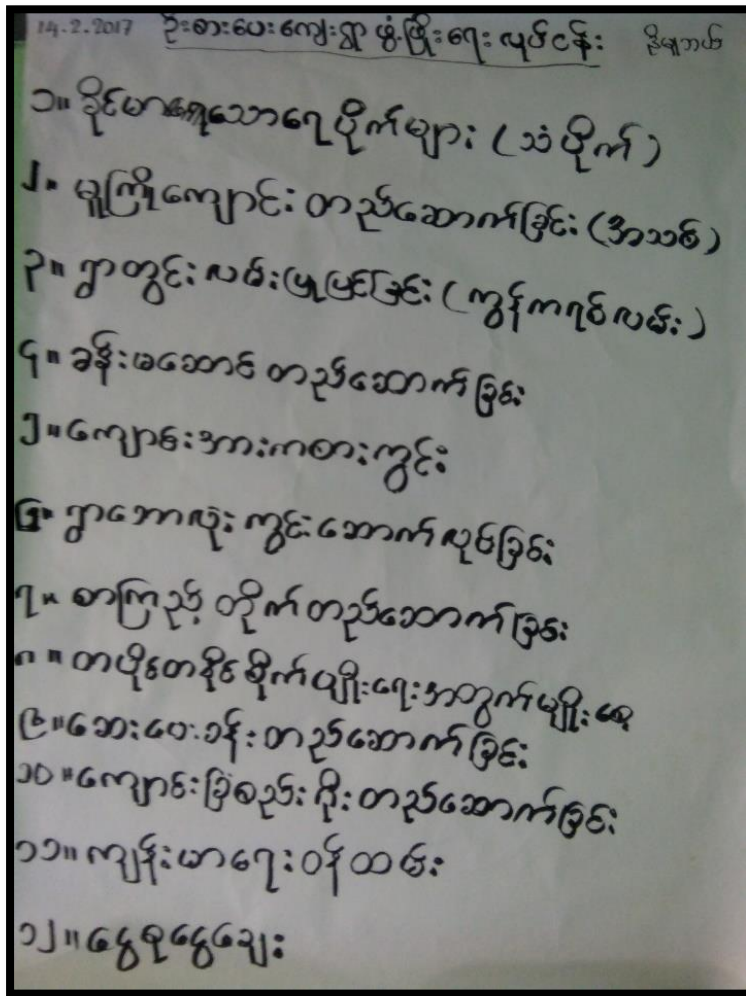 14.2.2017 ဦးစားပေးကျေးရွာ ဖွံ့ဖြိုးရေး လုပ်ငန်း
၁။ ခိုင်မာသောရေပိုက်များ (သံပိုက်)
၂။ မူကြိုကျောင်း တည်ဆောက်ခြင်း (အသစ်)
၃။ ရွာတွင်း လမ်းပြုပြင်ခြင်း (ကွန်ကရစ်လမ်း)
၄။ ခန်းမဆောင် တည်ဆောက်ခြင်း
၅။ ကျောင်းအားကစားကွင်း
၆။ ရွာဘောလုံး ကွင်းဆောက်လုပ်ခြင်း
၇။ စာကြည့် တိုက်တည်ဆောက်ခြင်း
၈။ တပိုင်တနိုင် စိုက်ပျိုးရေးအတွက်မျိုးစေ့
၉။ ဆေးပေးခန်းတည်ဆောက်ခြင်း
၁၀။ ကျောင်းခြံစည်းရိုးတည်ဆောက်ခြင်း
၁၁။ ကျန်းမာရေးဝန်ထမ်း
၁၂။ ငွေစုငွေချေး